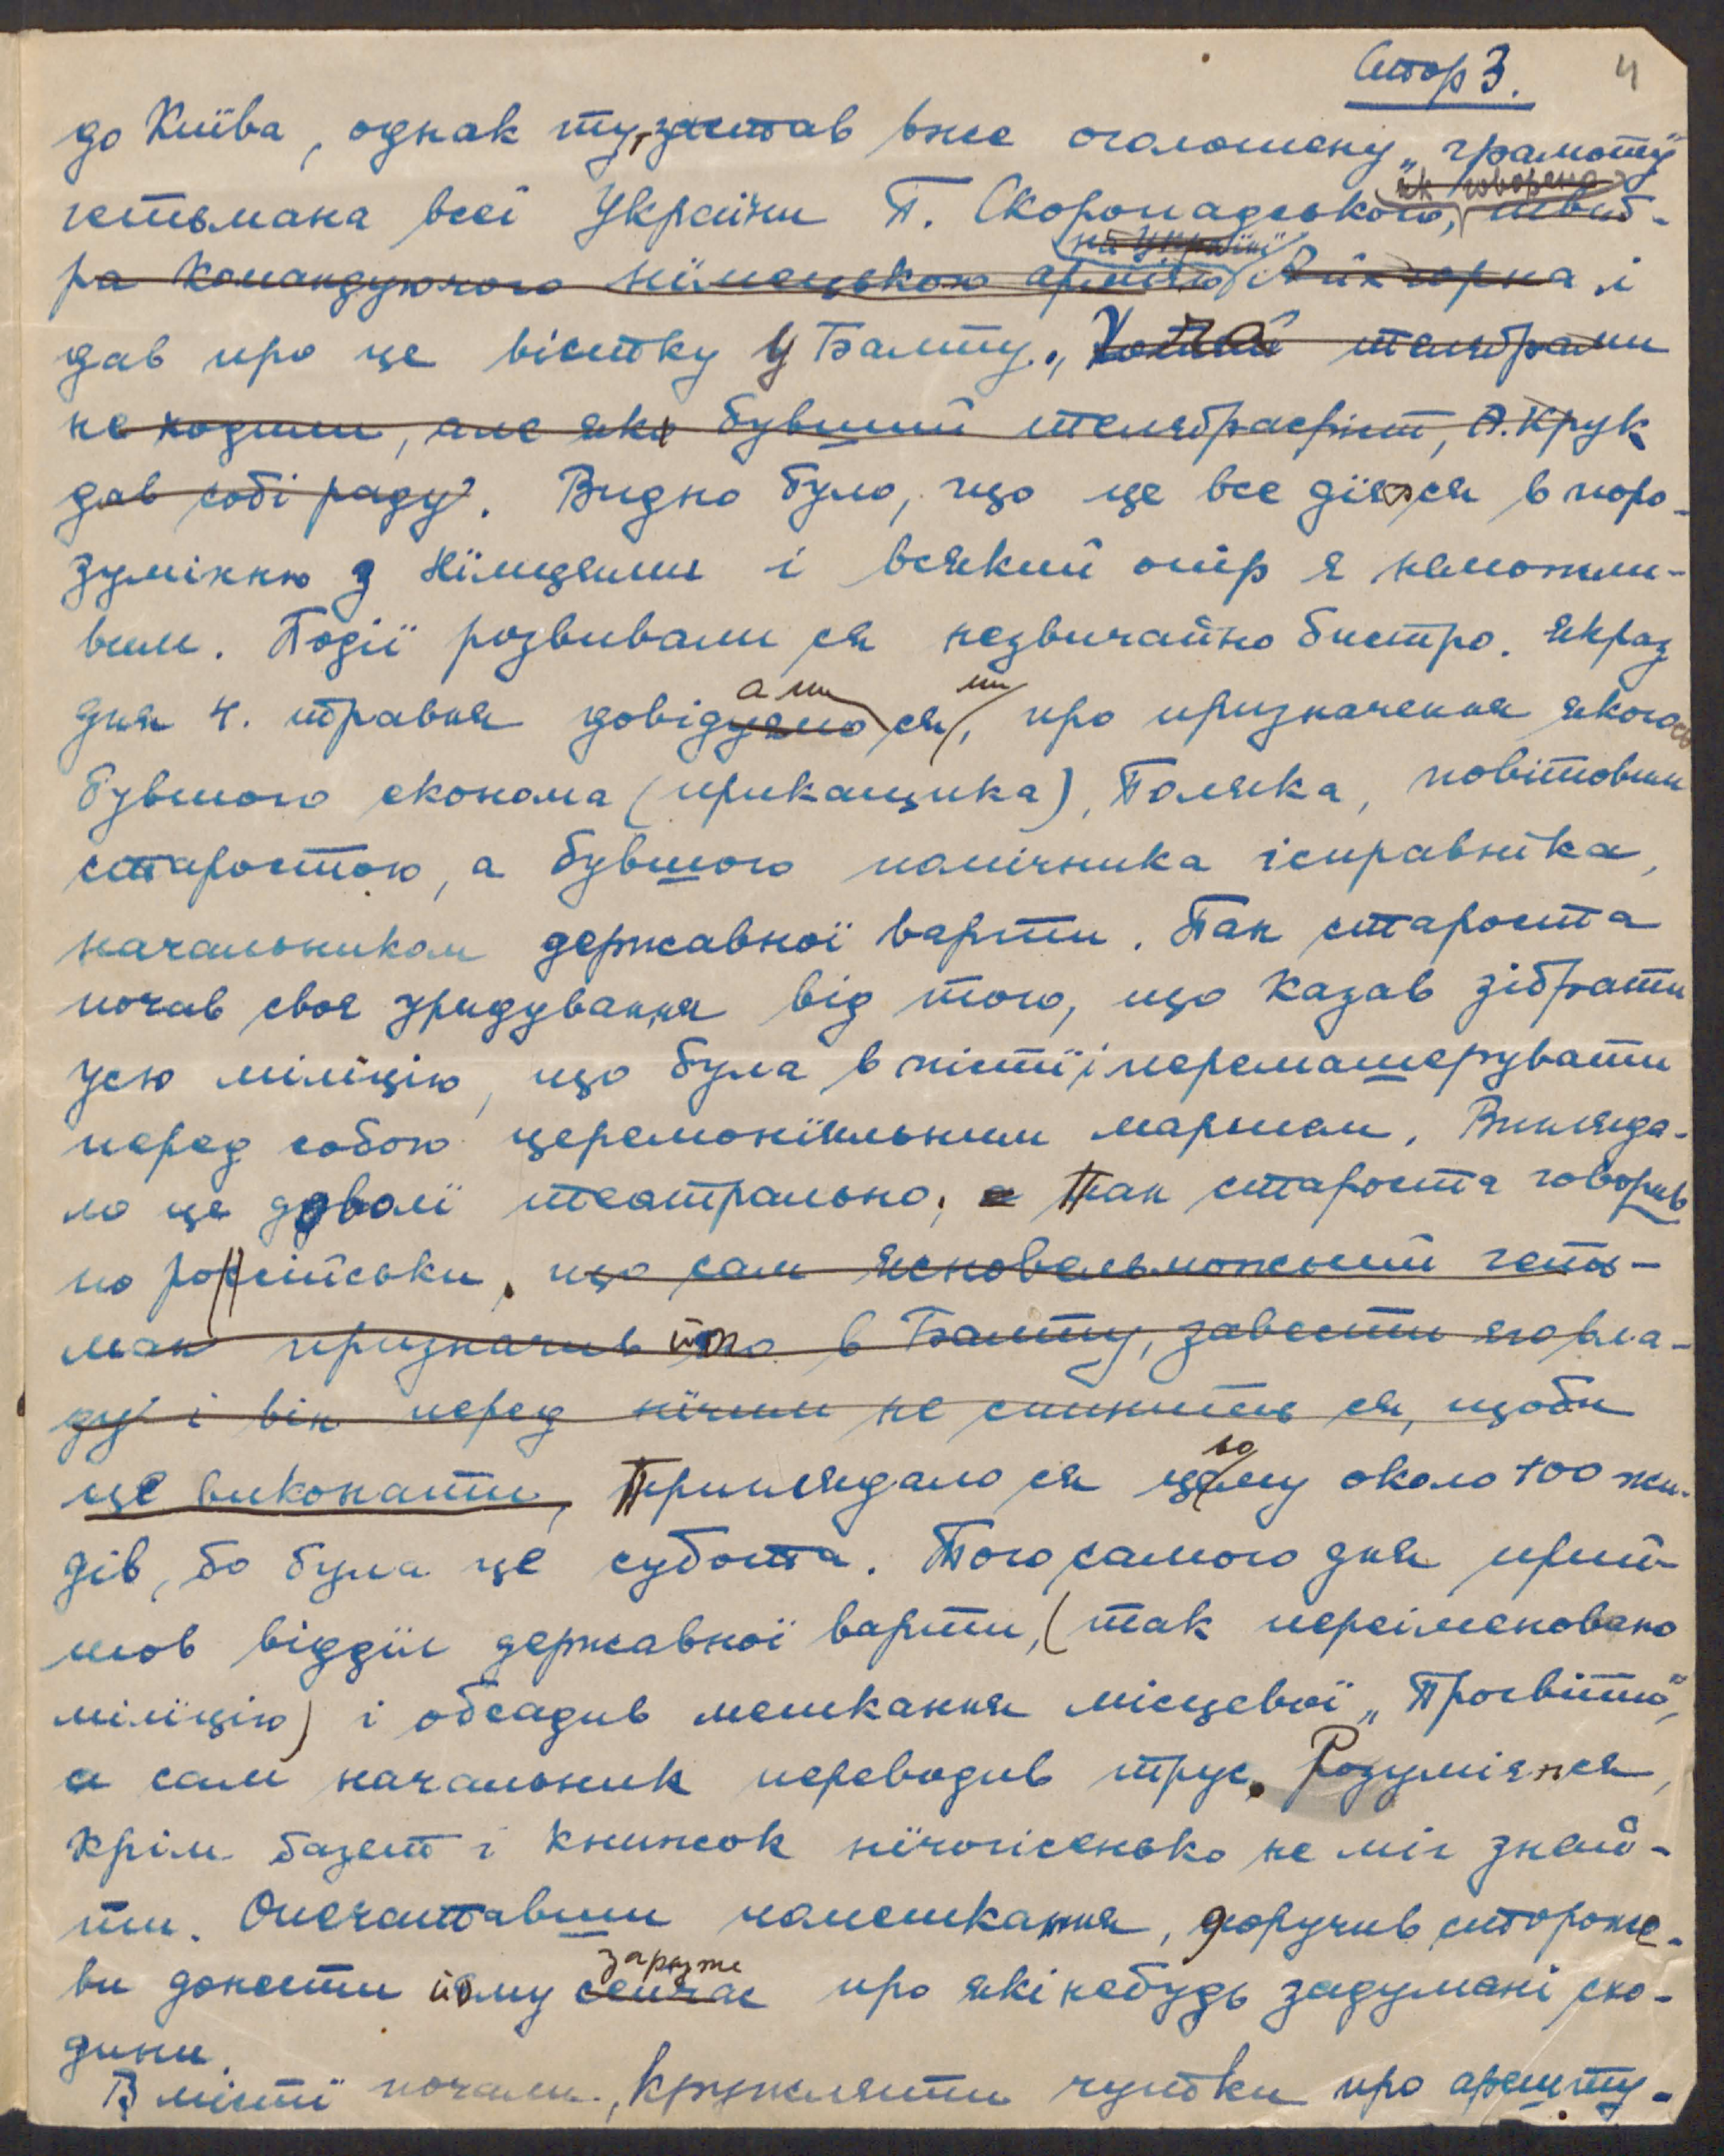 Стор 3. 4
до Київа, однак ту, застав вже оголошену „грамоту"
як говорено
гетьмана всеї Україны П. Скоропадського, шваб-
на Україні
ра командуючого німецькою армією Айхгорна і
дав про це вістку у Балту., Хотяй телєґрами
не ходили, але як бувший телєґрафіст, А. Крук
дав собі раду. Видно було, що це все діялося в поро-
зумінню з Німцями і всякий опір є неможли-
вим. Події розвивали ся незвичайно бистро. Якраз
али ми
дня 4. травня довідуємо ся, про призначення якогось
бувшого економа (прикащика), Поляка, повітовим
старостою, а бувшого помічника ісправніка,
начальником державної варти. Пан староста
почав своє урядування від того, що казав зібрати
усю міліцію, що була в місті і перемашерувати
перед собою церемоніяльним маршем. Вигляда-
ло це доволі театрально; а Пан староста говорив
по російськи, що сам ясновельможний геть-
ман призначив його в Балту, завести його вла-
ду і він перед нічим не спинить ся, щоби
це виконати, Приглядало ся цьому около 100 жи-
дів, бо була це субота. Того самого дня прий-
шов відділ державної варти, (так переіменовано
міліцію) і обсадив мешкання місцевої „Просвіти",
а сам начальник переводив трус. Розуміється,
крім ґазет і книжок нічогісенько не міг знай-
ти. Опечатавши помешкання, доручив стороже-
зараз же
ви донести йому сейчас про які небудь задумані схо-
дини.
В місті почали, кружляти чутки про арешту-